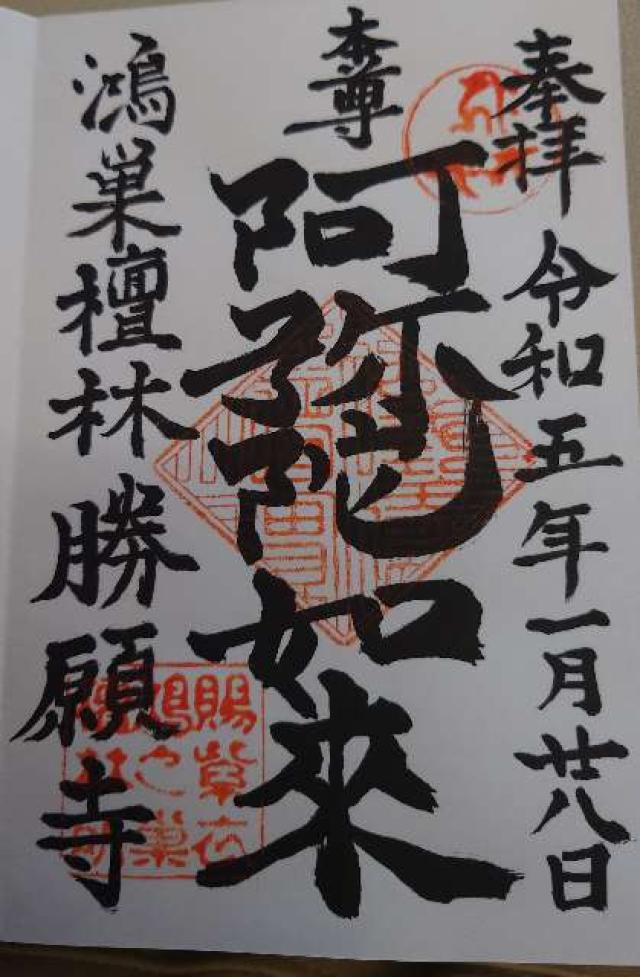 奉拝 令和五年一月廿八日
本尊
阿弥陀如來
鴻巣檀林 勝願寺